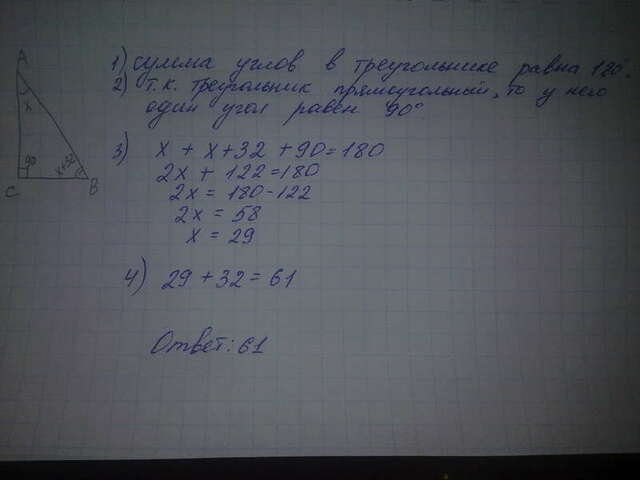 A
x
90
x+32
C
B
1) сумма углов в треугольнике равна 180°.
2) т.к. треугольник прямоугольный, то у него
один угол равен 90°
3) x + x+32 +90=180
2x + 122=180
2x = 180-122
2x = 58
x = 29
4) 29 + 32 = 61
Ответ: 61